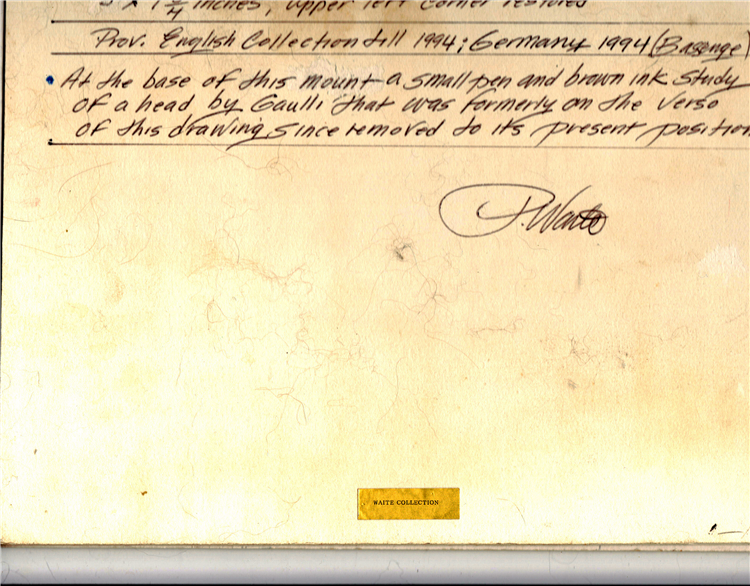 x 1 3/4 inches, upper left corner restored
Prov. English Collection till 1994; Germany 1994 (Bassenge)
• At the base of this mount a small pen and brown ink study
of a head by Gaulli that was formerly on the verso
of this drawing, since removed to its present position
P. Waite
WAITE COLLECTION